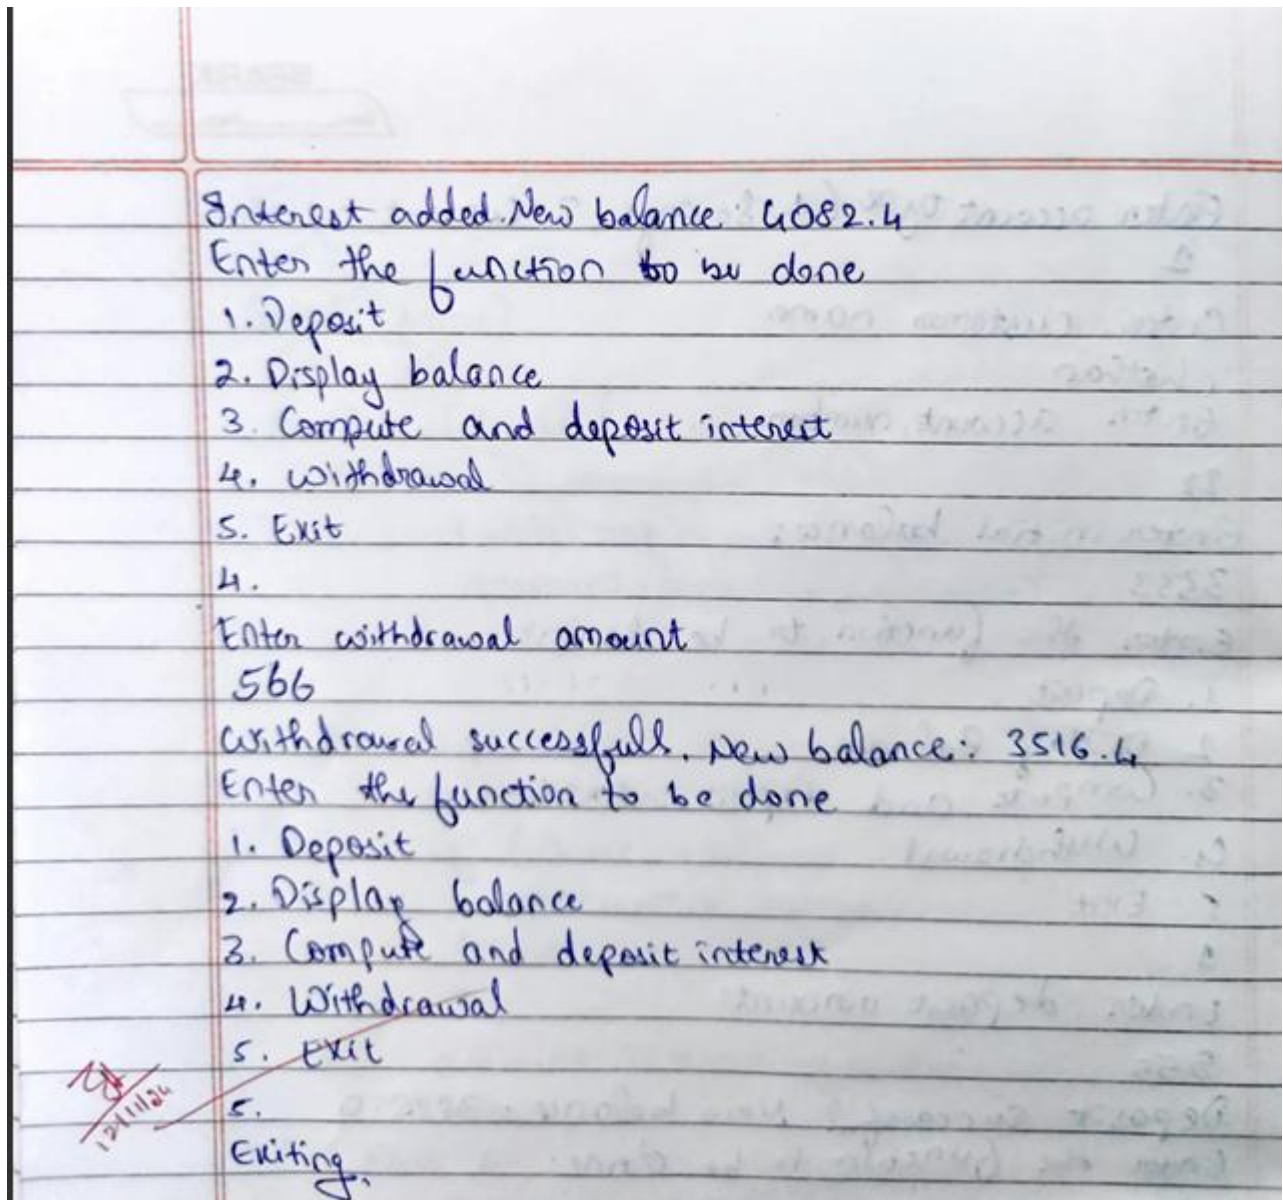 Interest added. New balance: 4082.4
Enter the function to be done
1. Deposit
2. Display balance
3. Compute and deposit interest
4. Withdrawal
5. Exit
4.
Enter withdrawal amount
566
Withdrawal successfull. New balance: 3516.4
Enter the function to be done
1. Deposit
2. Display balance
3. Compute and deposit interest
4. Withdrawal
5. Exit
5.
12/11/24
Exiting.